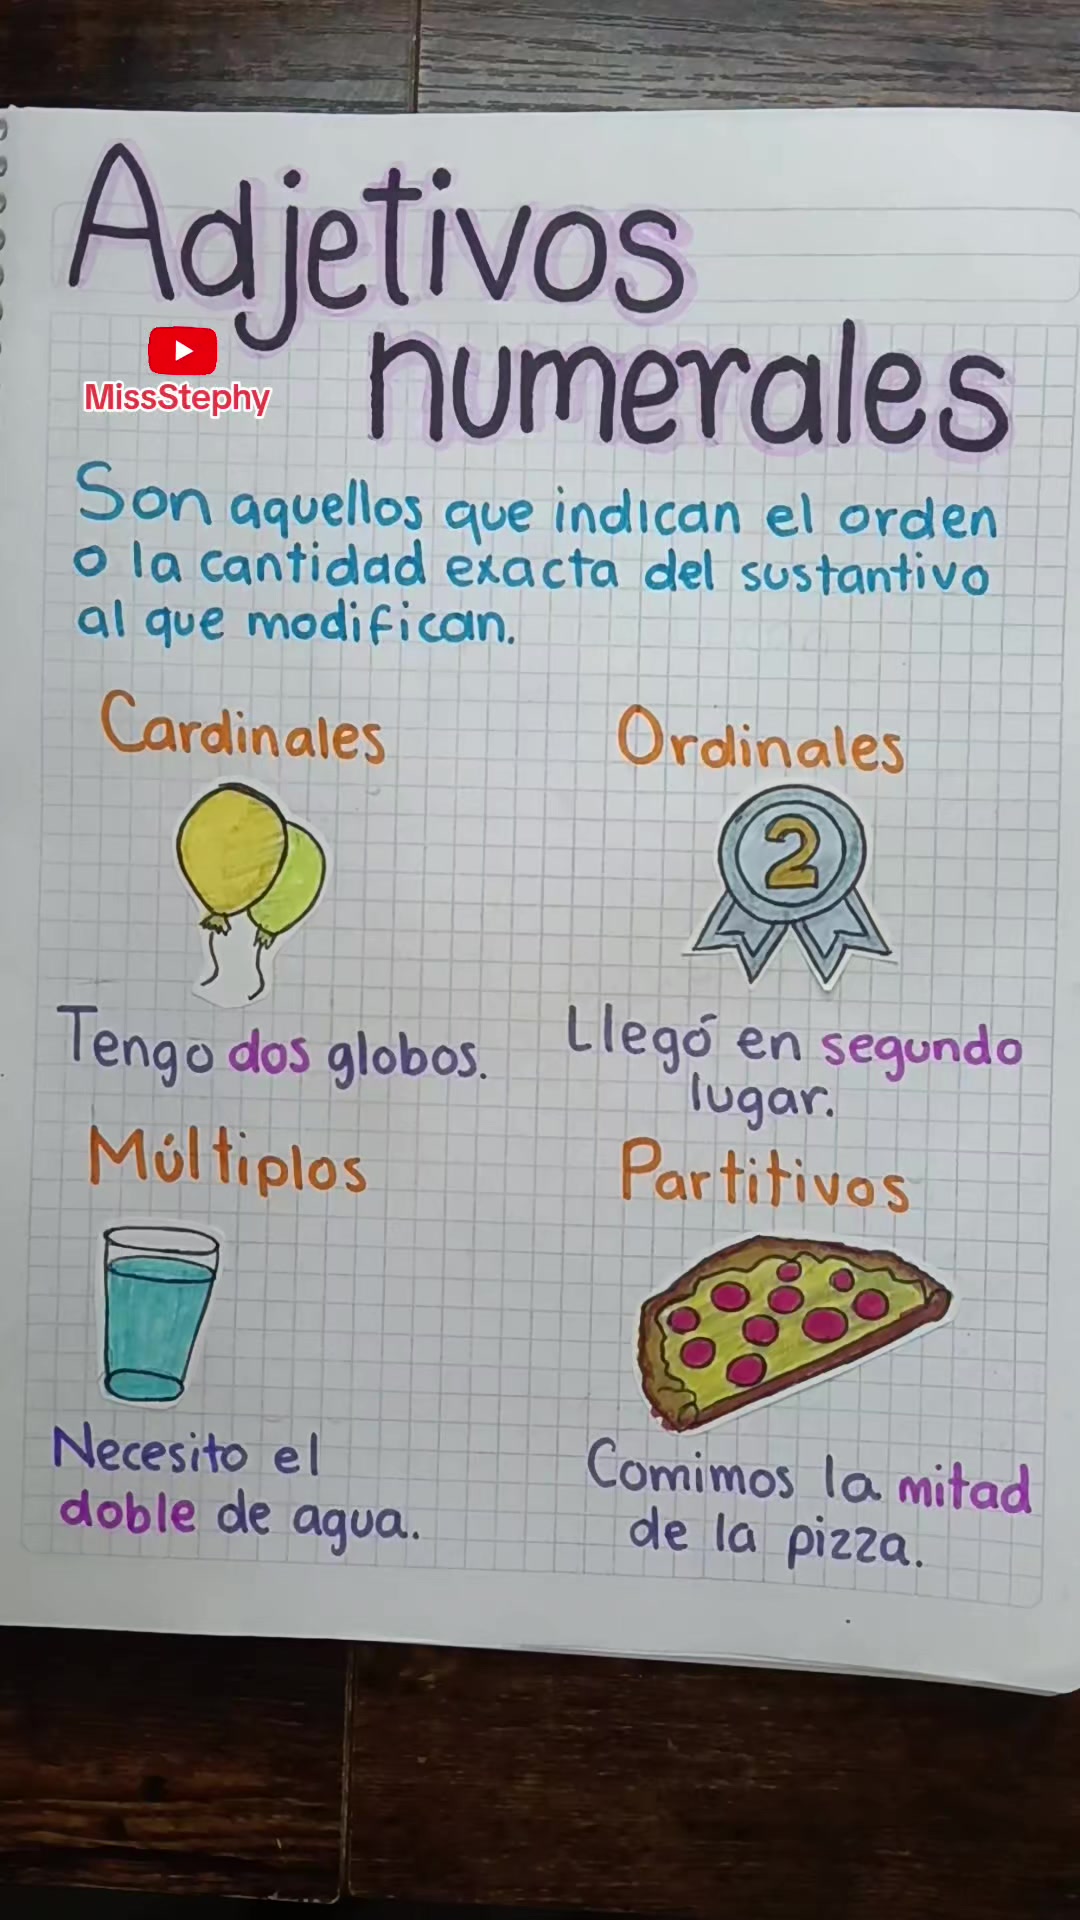 Adjetivos
numerales
MissStephy
Son aquellos que indican el orden
o la cantidad exacta del sustantivo
al que modifican.
Cardinales
Tengo dos globos.
Ordinales
2
Llegó en segundo
lugar.
Múltiplos
Necesito el
doble de agua.
Partitivos
Comimos la mitad
de la pizza.